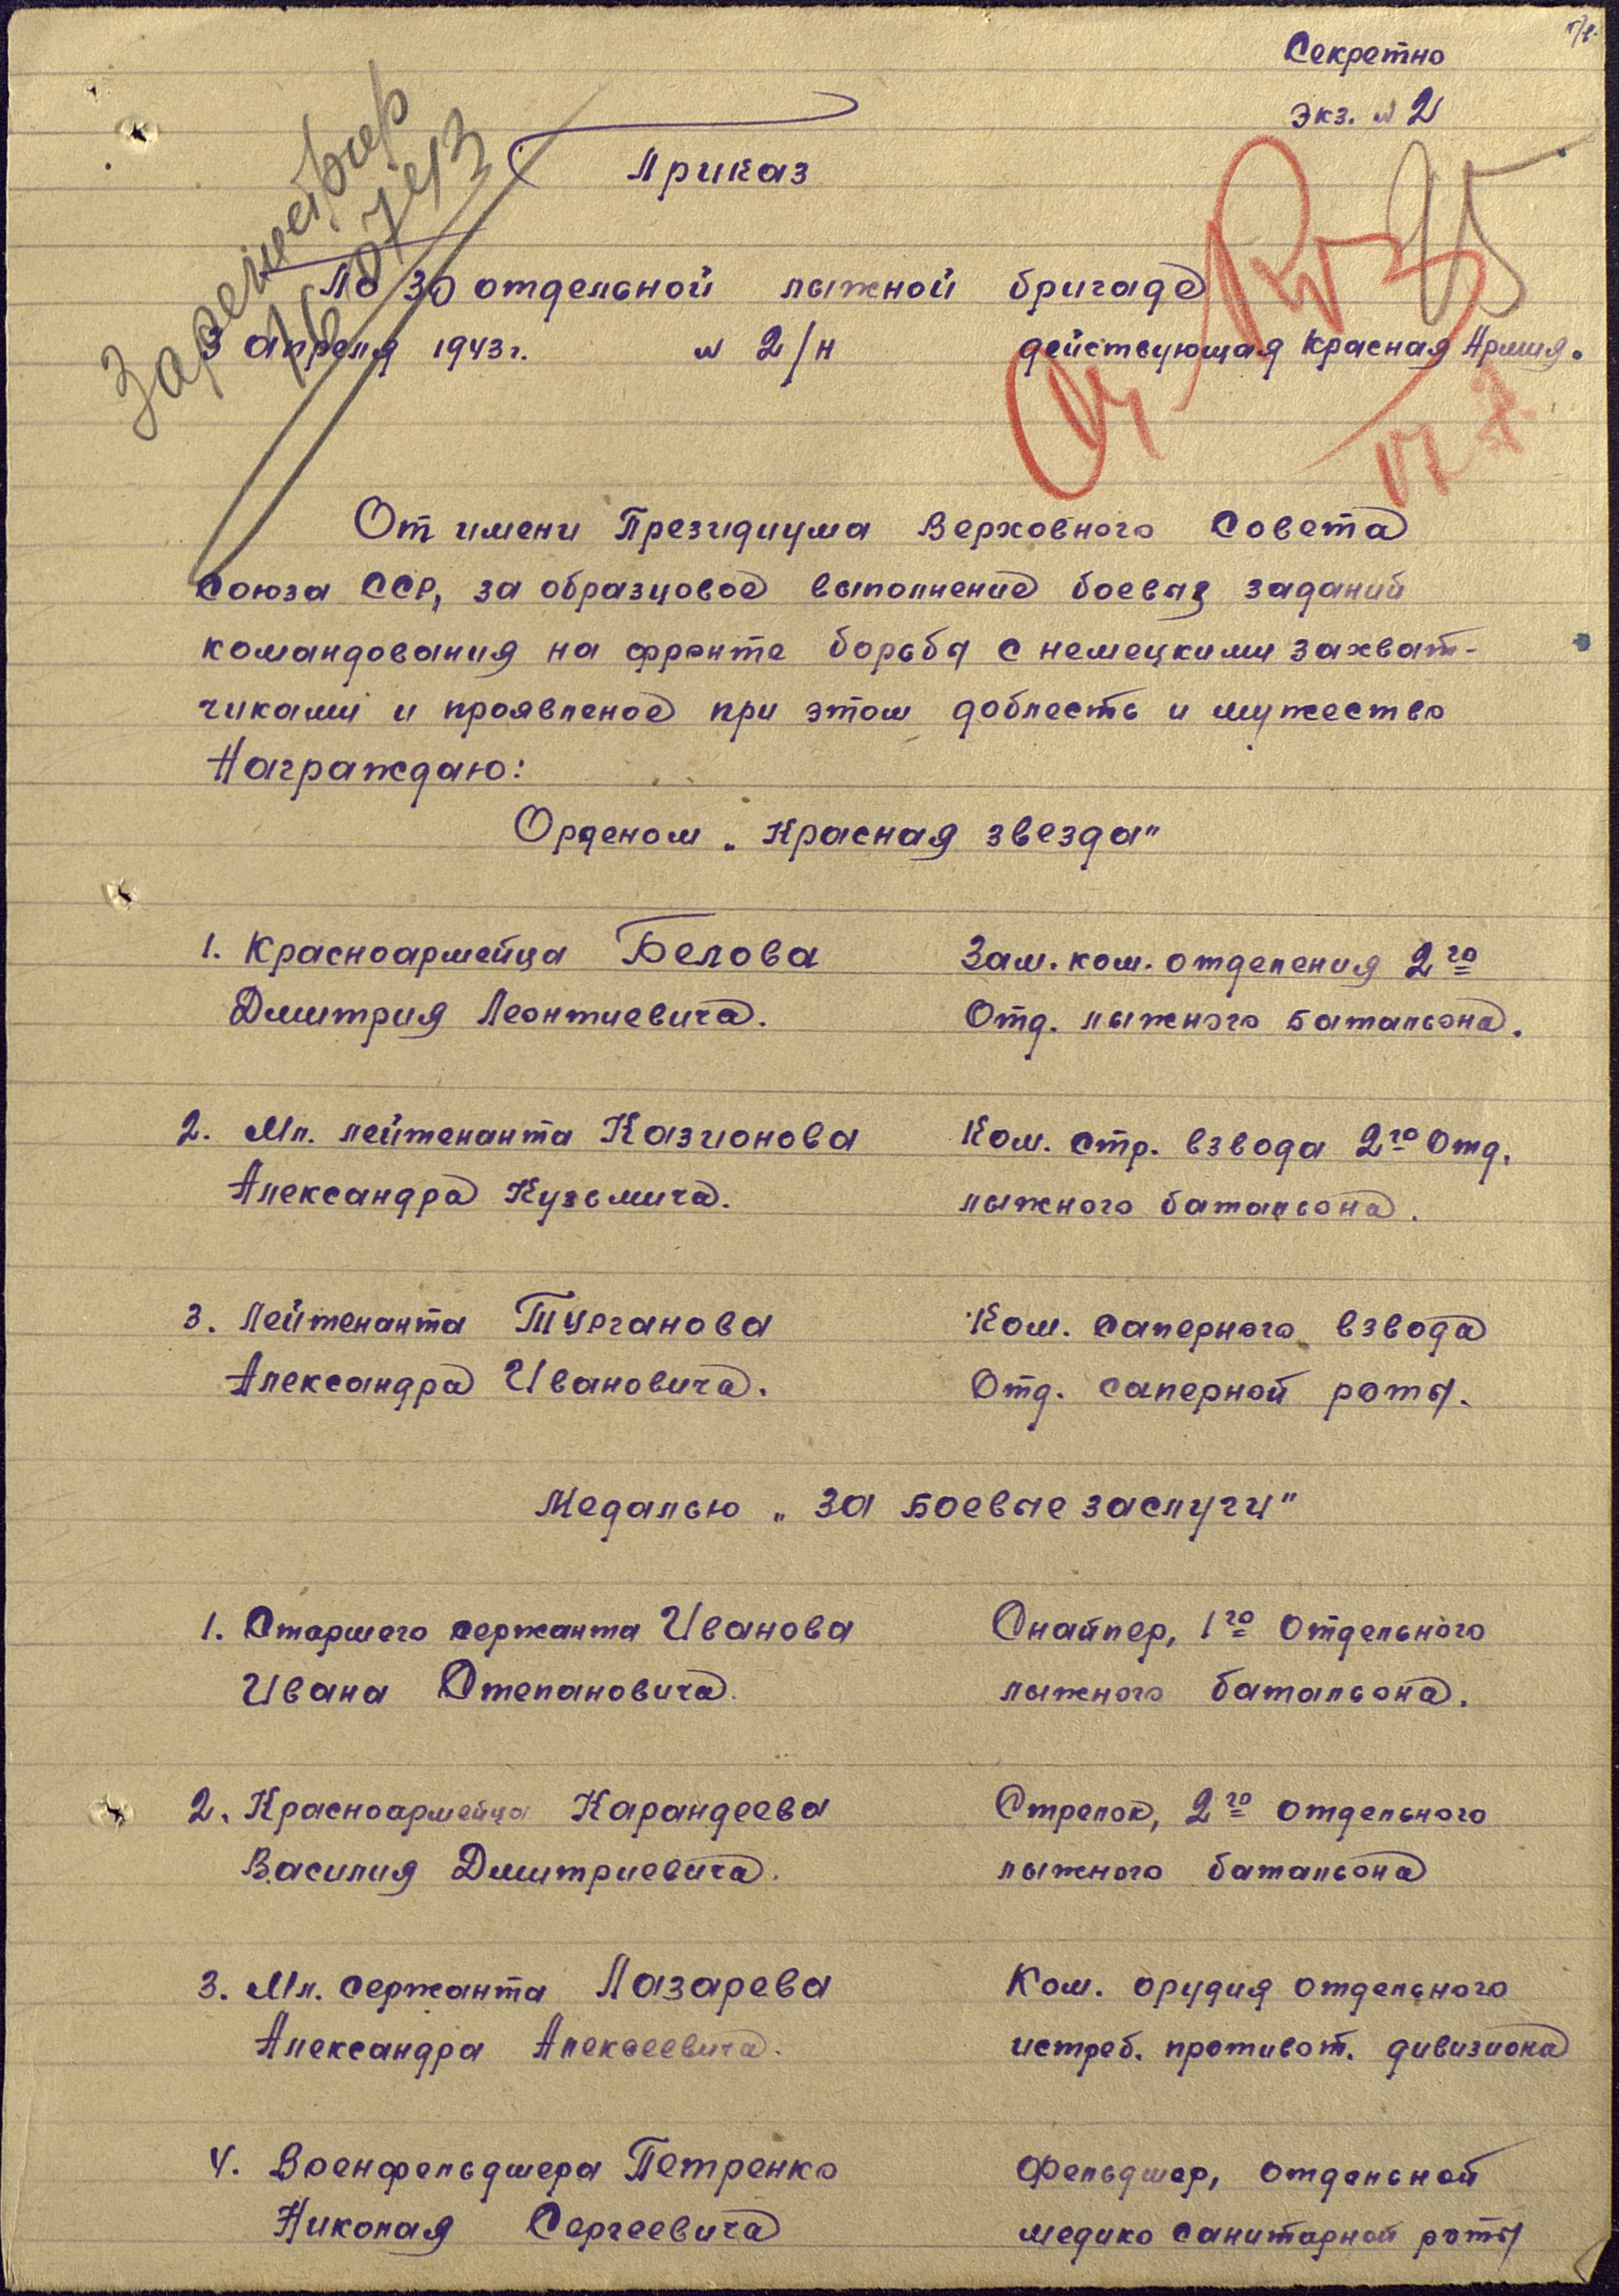 Секретно
экз. № 2
Приказ
Зарегистрир
16.07.43
По 30 отдельной лыжной бригаде
3 апреля 1943 г. № 2/н действующая Красная Армия.
17.7
От имени Президиума Верховного Совета
Союза ССР, за образцовое выполнение боевых заданий
командования на фронте борьбы с немецкими захват-
чиками и проявленое при этом доблесть и мужество
Награждаю:
Орденом „Красная звезда"
1. Красноармейца Белова Зам. ком. отделения 2го
Дмитрия Леонтиевича. Отд. лыжного батальона.
2. Мл. лейтенанта Казионова Ком. стр. взвода 2го Отд.
Александра Кузьмича. лыжного батальона.
3. Лейтенанта Турганова Ком. саперного взвода
Александра Ивановича. Отд. саперной роты.
Медалью „За боевые заслуги"
1. Старшего сержанта Иванова Снайпер, 1го отдельного
Ивана Степановича. лыжного батальона.
2. Красноармейца Карандеева Стрелок, 2го отдельного
Василия Дмитриевича. лыжного батальона
3. Мл. сержанта Лазарева Ком. орудия отдельного
Александра Алексеевича. истреб. противот. дивизиона
4. Военфельдшера Петренко Фельдшер, отдельной
Николая Сергеевича медико санитарной роты